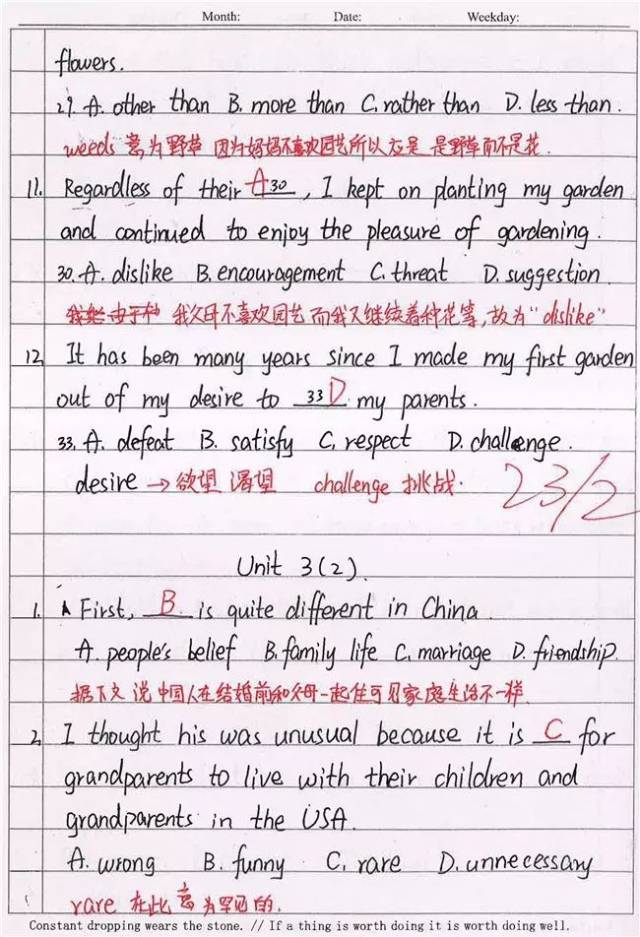 Month: Date: Weekday:
flowers.
29. A. other than B. more than C. rather than D. less than.
weeds 意为野草 因为妈妈不喜欢园艺所以应是 是野草而不是花.
11. Regardless of their A 30 , I kept on planting my garden
and continued to enjoy the pleasure of gardening.
30. A. dislike B. encouragement C. threat D. suggestion
我父母不喜欢园艺 而我又继续着种花等,故为"dislike"
12, It has been many years since I made my first garden
out of my desire to 33 D my parents.
33. A. defeat B. satisfy C. respect D. challenge.
desire → 欲望 渴望 challenge 挑战.
23/2
Unit 3(2).
1. First, B is quite different in China.
A. people's belief B. family life C. marriage D. friendship.
据下文 说中国人在结婚前和父母一起住可见家庭生活不一样.
2, I thought his was unusual because it is C for
grandparents to live with their children and
grandparents in the USA.
A. wrong B. funny C. rare D. unnecessary
rare 在此意为罕见的.
Constant dropping wears the stone. // If a thing is worth doing it is worth doing well.